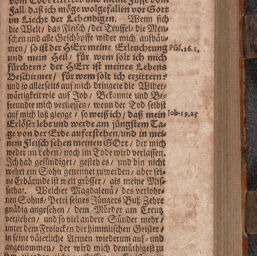 Fall/ daß ich möge wolgefallen vor Gott
im Liecht der Lebendigen. Wenn sich
die Welt/ das Fleisch/ der Teuffel/ die Men-
schen und alle Geschöpffe wider mich aufläh-
nen/ so ist der HErr meine Erleuchtung Psal. 26. 1.
und mein Heil/ für wem solt ich mich
fürchten? der HErr ist meines Lebens
Beschirmer/ für wem solt ich erzittern?
und so allerseits auf mich dringete die Wider-
wärtigkeit wie auf Job/ Bekannte und Be-
freundte mich verliessen/ wenn der Tod selbst
auf mich loß gienge/ so weiß ich/ daß mein Job. 19. 25
Erlöser lebe und werde am jüngsten Ta-
ge von der Erde auferstehen/ und in mei-
nem Fleisch sehen meinen GOtt/ der mich
weder im Leben/ noch im Tode wird verlassen.
Ich hab gesündiget/ gesteh es/ und bin nicht
wehrt ein Sohn genennet zu werden/ aber sei-
ne Erbärmde ist weit grösser/ als meine Mis-
sethat. Welcher Magdalenä/ des verlohr-
nen Sohns/ Petri seines Jüngers Buß-Zehre
gnädig angesehen/ dem Mörder am Creutz
verziehen/ und so viel andere Sünder mehr/
unter dem Frolocken der himmlischen Geister/
in seine väterliche Armen wiederum auf- und
angenommen/ der wird mich demühtigst zu